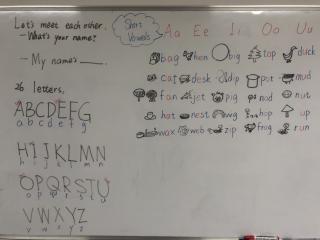 Let's meet each other.
- What's your name?
- My name's ____.
26 letters.
ABCDEFG
a b c d e f g
HIJKLMN
h i j k l m n
OPQRSTU
o p q r s t u
VWXYZ
v w x y z
Short Vowels
Aa Ee Ii Oo Uu
bag hen big stop duck
cat desk dip pot mud
fan jet pig nod nut
hat nest wig hop up
wax web zip frog run